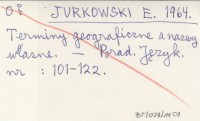 0š JURKOWSKI E. 1964.
Terminy geograficzne a nazwy
własne. – Porad. Język.
nr : 101-122.